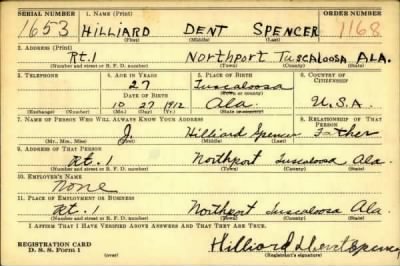 SERIAL NUMBER 1. NAME (Print) ORDER NUMBER
1653 HILLIARD DENT SPENCER 1168
(First) (Middle) (Last)
2. ADDRESS (Print)
Rt. 1 Northport Tuscaloosa ALA.
(Number and street or R. F. D. number) (Town) (County) (State)
3. TELEPHONE 4. AGE IN YEARS 5. PLACE OF BIRTH 6. COUNTRY OF CITIZENSHIP
27 Tuscaloosa
DATE OF BIRTH (Town or county)
10 27 1912 Ala. U.S.A.
(Exchange) (Number) (Mo.) (Day) (Yr.) (State or country)
7. NAME OF PERSON WHO WILL ALWAYS KNOW YOUR ADDRESS 8. RELATIONSHIP OF THAT PERSON
J. Hilliard Spencer Father
(Mr., Mrs., Miss) (First) (Middle) (Last)
9. ADDRESS OF THAT PERSON
Rt. 1 Northport Tuscaloosa Ala
(Number and street or R. F. D. number) (Town) (County) (State)
10. EMPLOYER'S NAME
None
11. PLACE OF EMPLOYMENT OR BUSINESS
Rt. 1 Northport Tuscaloosa Ala.
(Number and street or R. F. D. number) (Town) (County) (State)
I AFFIRM THAT I HAVE VERIFIED ABOVE ANSWERS AND THAT THEY ARE TRUE.
REGISTRATION CARD
D. S. S. Form 1 Hilliard Dent Spencer
(Registrant's signature)